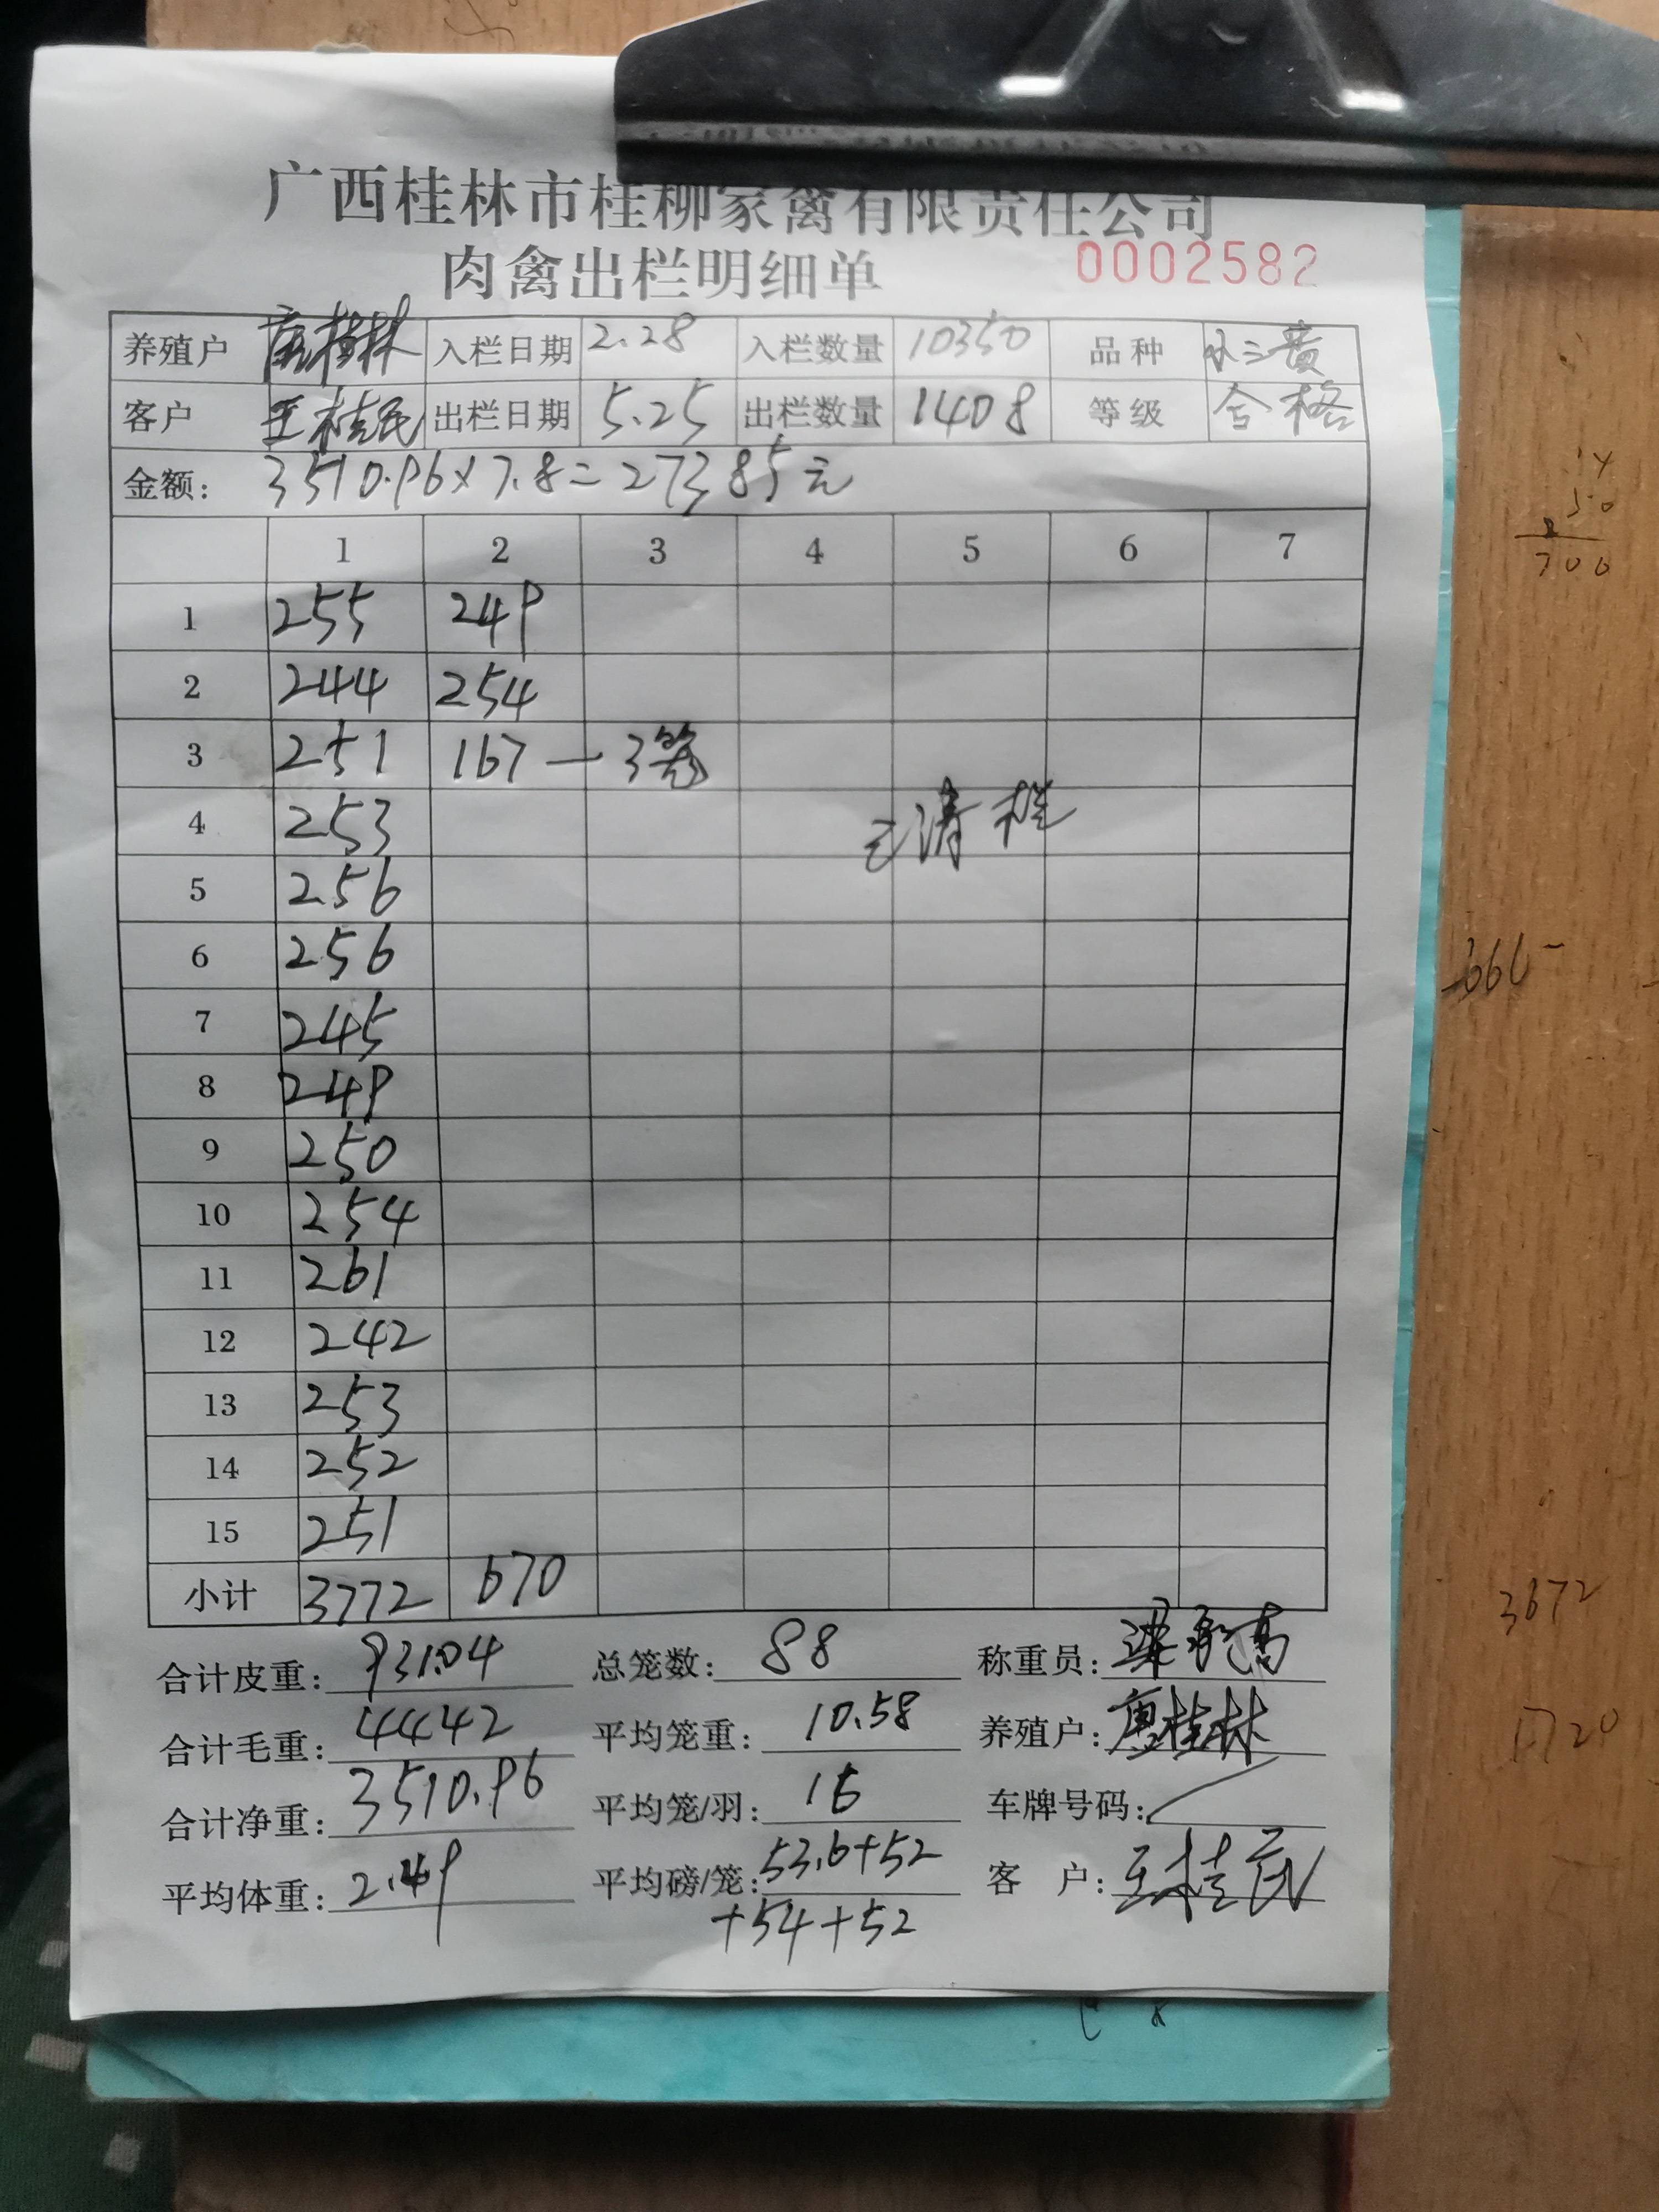 广西桂林市桂柳家禽有限责任公司
肉禽出栏明细单 0002582
养殖户 唐桂林 入栏日期 2.28 入栏数量 10350 品种 小三黄
客户 王桂民 出栏日期 5.25 出栏数量 1408 等级 合格
金额: 3510.96×7.8=27385元
1 2 3 4 5 6 7
1 255 249
2 244 254
3 251 167 — 3笼
4 253 已清栏
5 256
6 256
7 245
8 249
9 250
10 254
11 261
12 242
13 253
14 252
15 251
小计 3772 670
合计皮重: 931.04 总笼数: 88 称重员:
合计毛重: 4442 平均笼重: 10.58 养殖户: 唐桂林
合计净重: 3510.96 平均笼/羽: 16 车牌号码: /
平均体重: 2.49 平均磅/笼: 53.6+52 客户: 王桂民
+54+52
50
700
3672
1720